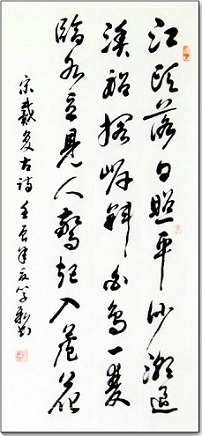 江頭落日照平沙潮退
漁船擱岸斜白鳥一雙
臨水立見人驚起入蘆花
宋戴復古詩壬辰年